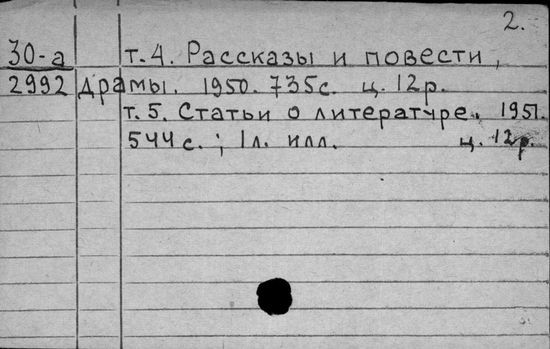 2.
30-а т.4. Рассказы и повести,
2992 драмы. 1950. 735с. ц. 12р.
т.5. Статьи о литературе. 1951.
544с.; 1л. илл. ц. 12р.